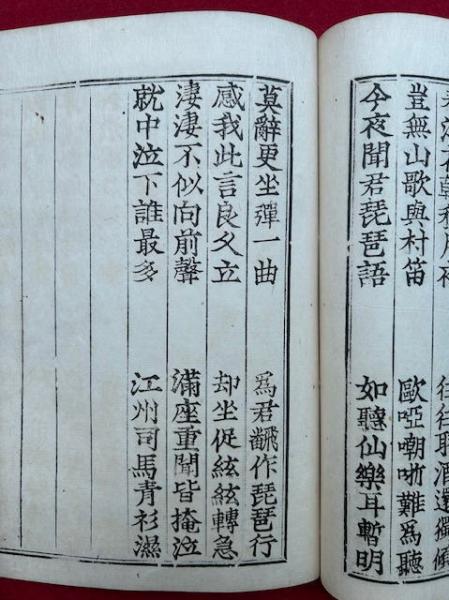 春江花朝秋月夜 往往取酒還獨傾
豈無山歌與村笛 歐啞嘲哳難爲聽
今夜聞君琵琶語 如聽仙樂耳暫明
莫辭更坐彈一曲 爲君飜作琵琶行
感我此言良久立 却坐促絃絃轉急
淒淒不似向前聲 滿座重聞皆掩泣
就中泣下誰最多 江州司馬青衫濕